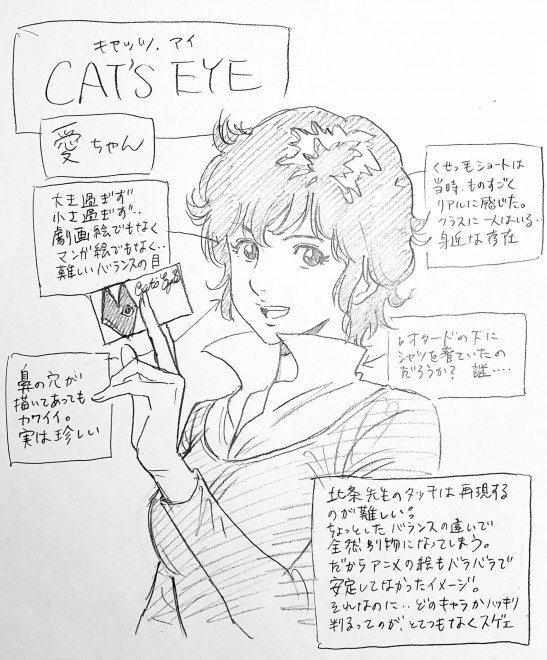 キャッツ・アイ
CAT'S EYE
愛ちゃん
大き過ぎず
小さ過ぎず‥
劇画絵でもなく
マンガ絵でもなく‥
難しいバランスの目
くせっ毛ショートは
当時、ものすごく
リアルに感じた。
クラスに一人はいる‥
身近な存在
Cat's Eye
レオタードの下に
シャツを着ていたの
だろうか? 謎‥‥
鼻の穴が
描いてあっても
カワイイ。
実は珍しい
北条先生のタッチは再現する
のが難しい。
ちょっとしたバランスの違いで
全然別物になってしまう。
だからアニメの絵もバラバラで
安定してなかったイメージ。
それなのに‥どのキャラかハッキリ
判るってのが、とてつもなくスゲェ